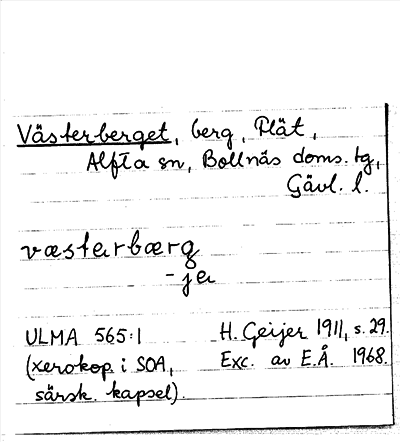 Västerberget, berg, Plät,
Alfta sn, Bollnäs doms. tg,
Gävl. l.
væsterbærg
-jer
ULMA 565:1 H. Geijer 1911, s. 29.
(xerokop. i SOA, Exc. av E.Å. 1968.
särsk. kapsel).